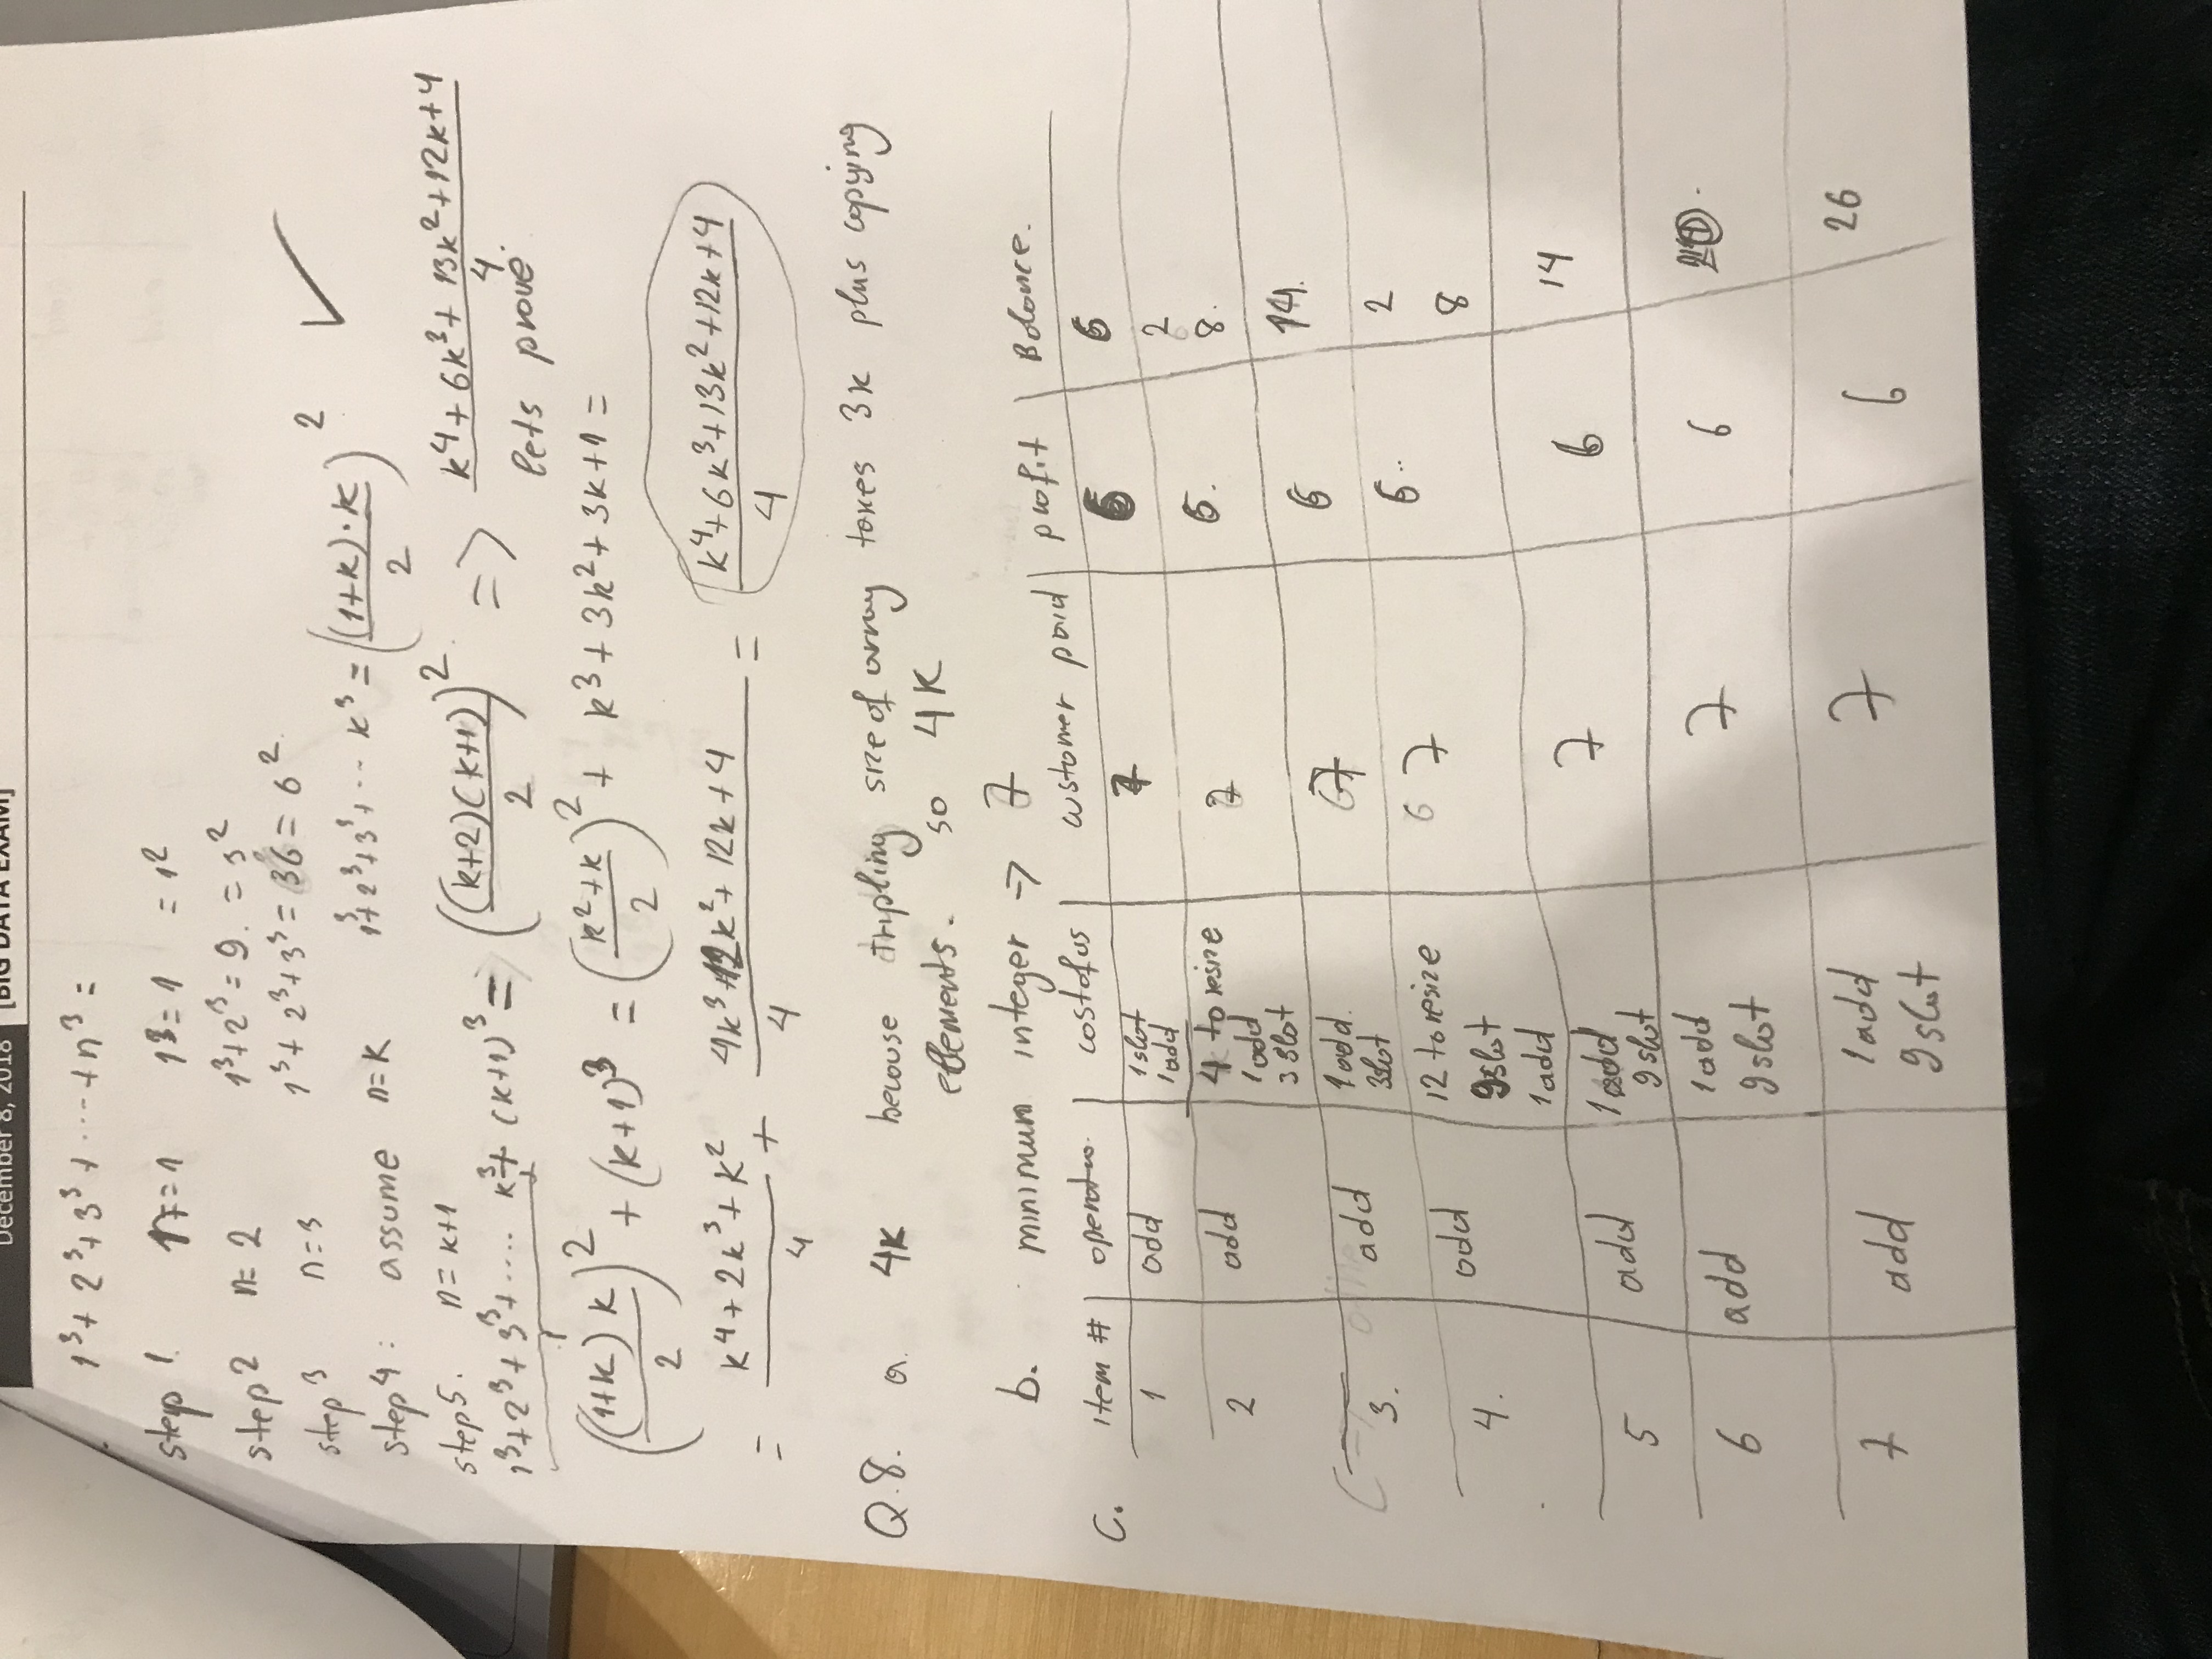 December 8, 2018 [BIG DATA EXAM]
1³ + 2³ + 3³ + ... + n³ =
step 1. n = 1 1³ = 1 = 1²
step 2 n = 2 1³ + 2³ = 9. = 3²
step 3 n = 3 1³ + 2³ + 3³ = 36 = 6²
step 4: assume n = k 1³ + 2³ + 3³ + ... k³ = ((1+k)·k / 2)² ✓
step 5. n = k+1
1³ + 2³ + 3³ + .... k³ + (k+1)³ = ((k+2)(k+1) / 2)² => (k⁴ + 6k³ + 13k² + 12k + 4) / 4.
lets prove
((1+k) k / 2)² + (k+1)³ = ((k² + k) / 2)² + k³ + 3k² + 3k + 1 =
= (k⁴ + 2k³ + k²) / 4 + (4k³ + 12k² + 12k + 4) / 4 = (k⁴ + 6k³ + 13k² + 12k + 4) / 4
Q.8. a. 4k becouse tripling size of array takes 3k plus copying
elements. so 4K
b. minimum integer -> 7
C. item # costofus customer paid profit Balance.
1 add 1 slot 7 6
1 add
2
2 add 4 to resize 7 6. 8.
1 add
3 slot
3. add 1 add. 7 6 14.
3 slot
4. add 12 to resize 6 7 6.. 2
9 slot 8
1 add
5 add 1 add 7 6 14
9 slot
6 add 1 add 7 6
9 slot
7 add 1 add 7 6 26
9 slot